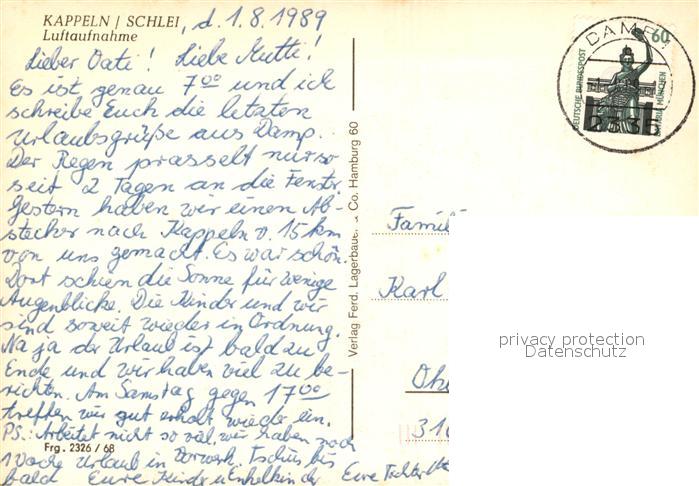 KAPPELN / SCHLEI, d. 1.8.1989
Luftaufnahme
Lieber Vati! Liebe Mutti!
Es ist genau 7⁰⁰ und ich
schreibe Euch die letzten
Urlaubsgrüße aus Damp.
Der Regen prasselt nur so
seit 2 Tagen an die Fenster.
Gestern haben wir einen Ab-
stecher nach Kappeln v. 15 km
von uns gemacht. Es war schön.
Dort schien die Sonne für wenige
Augenblicke. Die Kinder und wir
sind soweit wieder in Ordnung.
Na ja der Urlaub ist bald zu
Ende und wir haben viel zu be-
richten. Am Samstag gegen 17⁰⁰
treffen wir gut erholt wieder ein.
PS.: Arbeitet nicht so viel, wir haben noch
1 Woche Urlaub in Vorwerk. Tschüs bis
bald Eure Kinder u Enkelkinder Eure Tochter
Frg. 2326 / 68
Verlag Ferd. Lagerbauer & Co. Hamburg 60
DAMP
2335
60
DEUTSCHE BUNDESPOST
BAVARIA MÜNCHEN
Famili
Karl
Ohe
310
privacy protection
Datenschutz